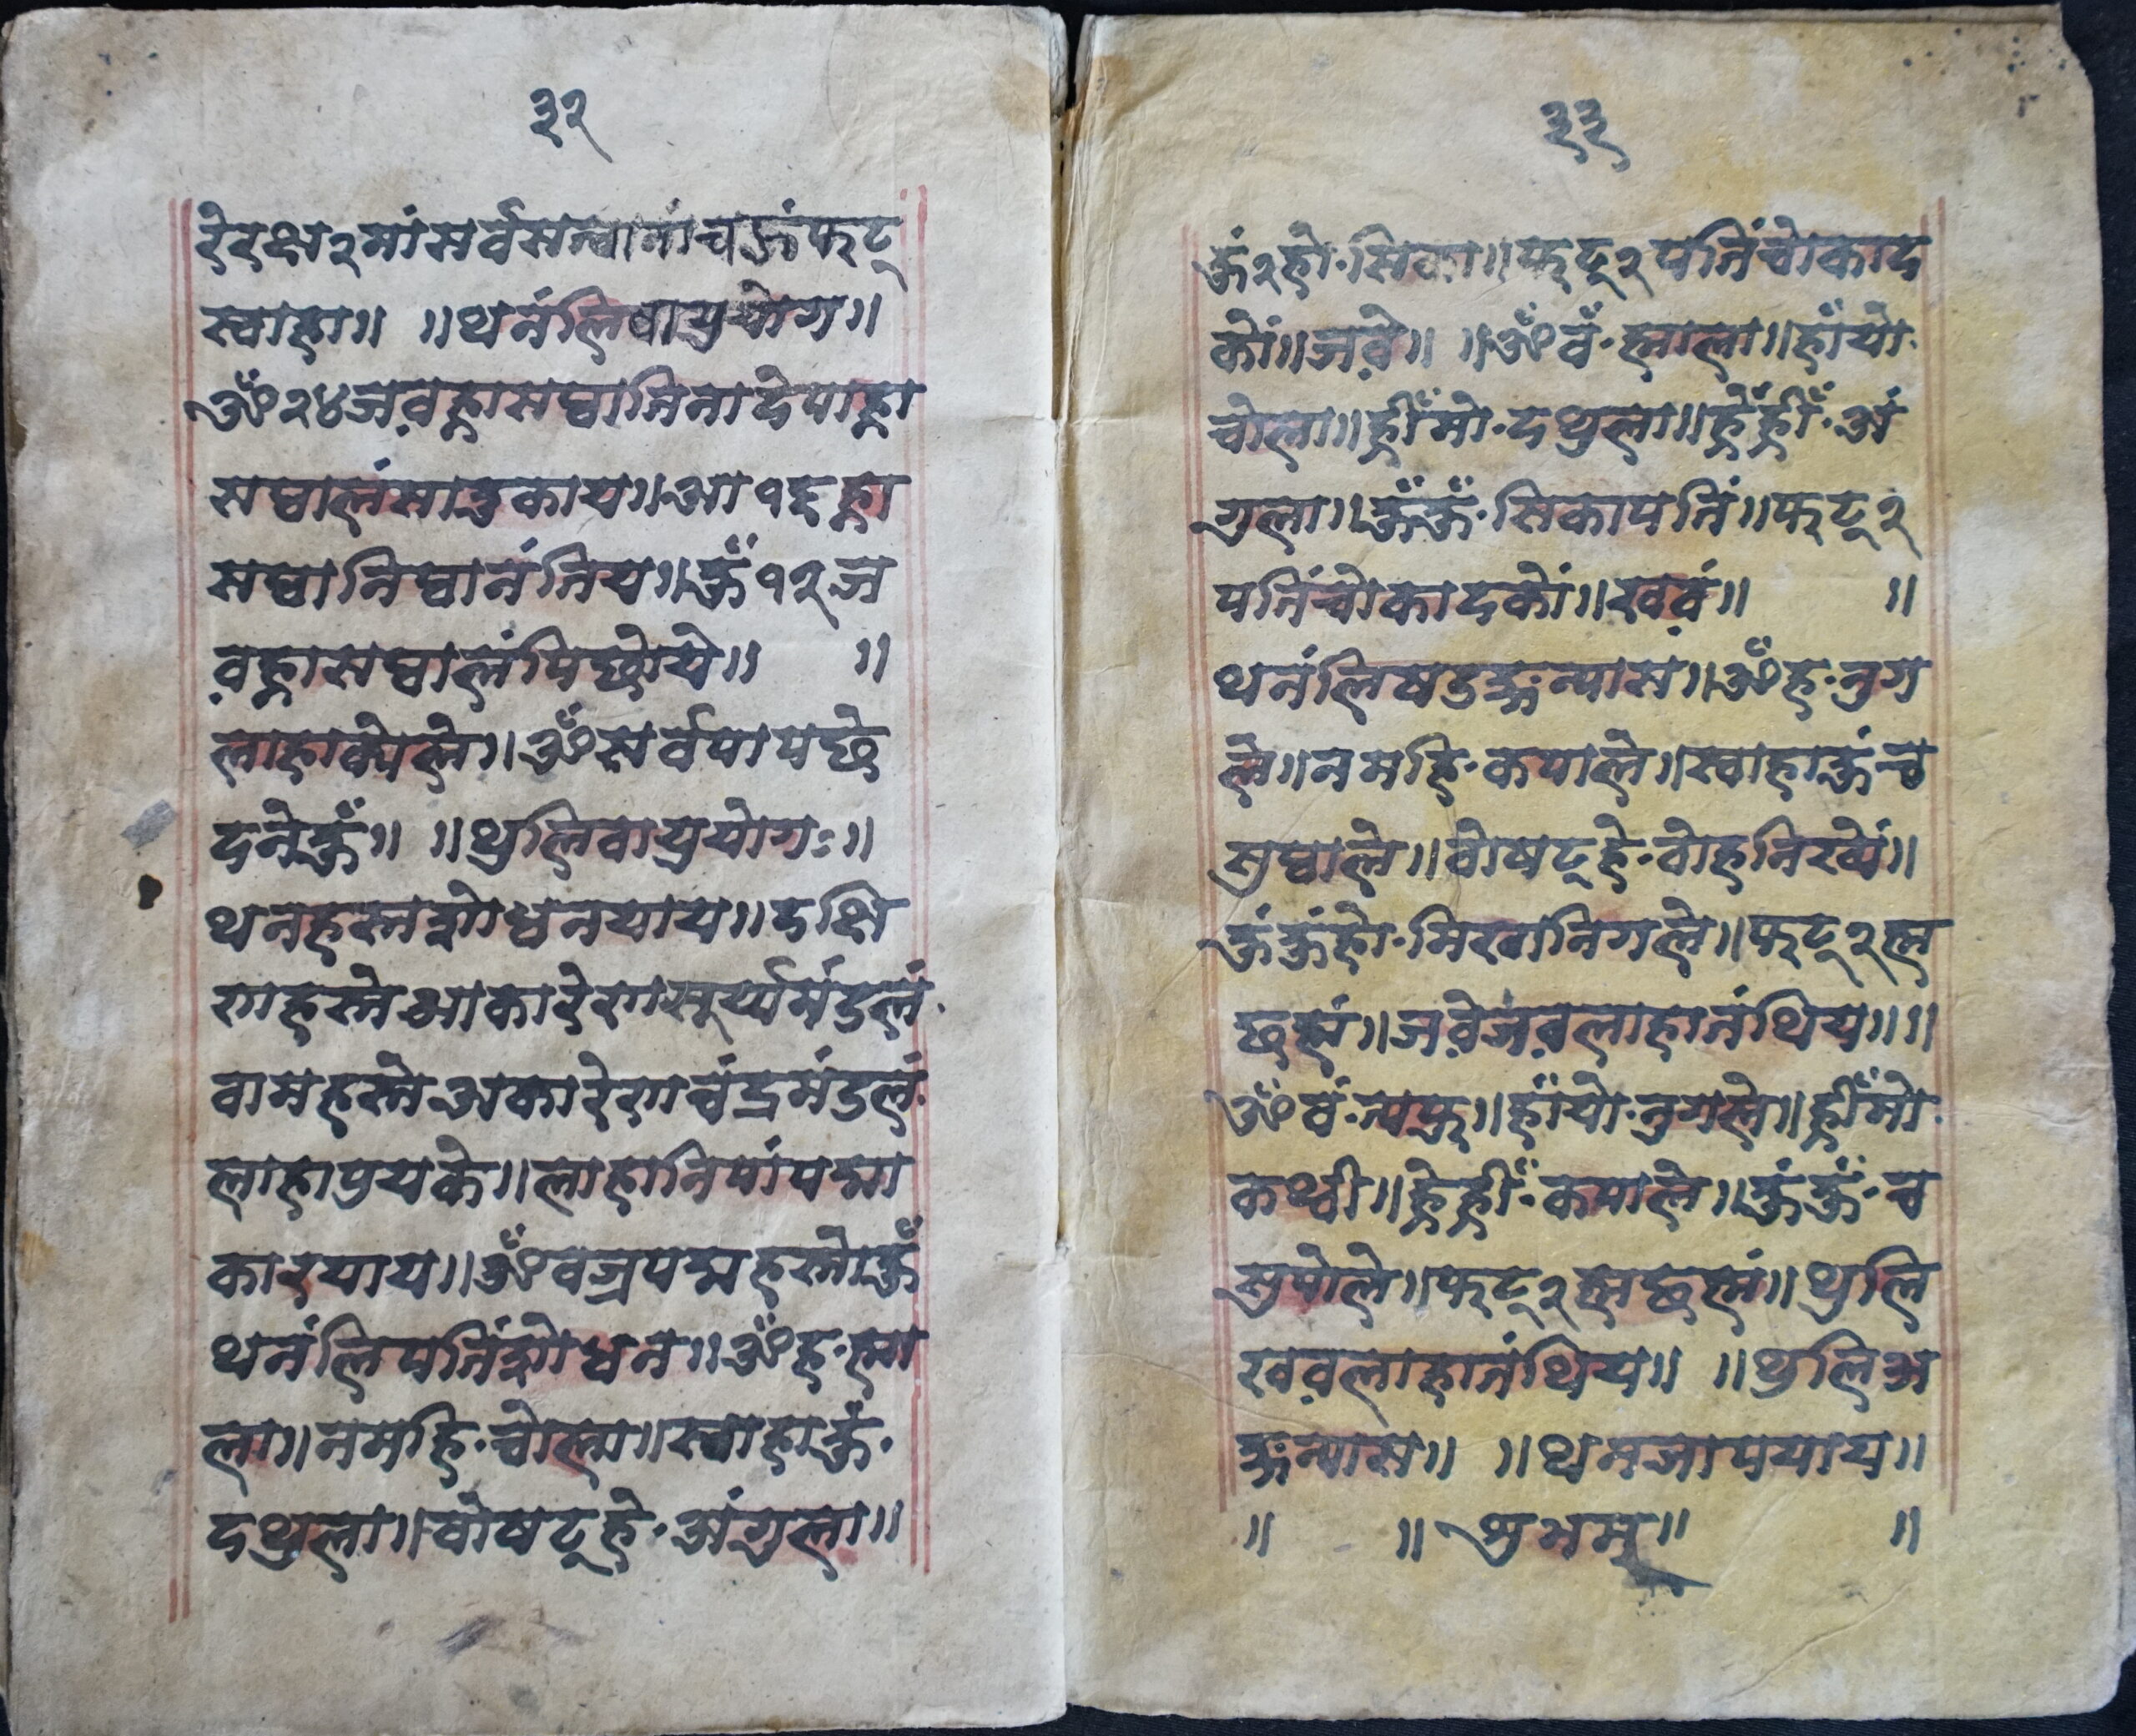 ३२
रे रक्ष २ मां सर्वसत्वानां च हूं फट्
स्वाहा॥ ॥थनंलि बाप्रयोग॥
ॐ २४ जव़ह्लासघ्वानि नादेपाह्ला
सघ्वालं साउकाय॥ आ १६ ह्ला
सघ्वानिघ्वानं निय॥ हूँ १२ ज
व़ह्लासघ्वालं पिछोये॥ ॥
लाहाक्येले॥ ॐ सर्वपापछे
दने हूँ॥ ॥थुलि बाप्रयोगः॥
थन हस्तशोधन याय॥ दक्षि
णहस्ते आकारेण सूर्य्यमंडलं.
वामहस्ते अकारेण चंद्रमंडलं.
लाहाप्रयके॥ लाहानिपां पद्मा
कार याय॥ ॐ वज्रपद्महस्तो हूँ
थनंलि पनिंशोधन॥ ॐ ह. ह्मा
ला॥ नमहि. चोला॥ स्वाहा हूं.
दथुला॥ वौषट् हे. अंगुला॥
३३
हूं २ हो. सिका॥ फट् २ पनिंचोकाद
कों॥ जव़े॥ ॥ॐ वँ. ह्माला॥ हाँ यो.
चोला॥ ह्रीँ मो. दथुला॥ ह्रेँ ह्रीँ. अं
गुला॥ हूँ हूँ. सिकापनिं॥ फट् २
पनिंचोकादकों॥ खव़ं॥ ॥
थनंलि षडङ्गन्यास॥ ॐ ह. नुग
ले॥ नमहि. कपाले॥ स्वाहा हूं च
सुघ्वाले॥ वोषट् हे. वोहनिख्यें॥
हूं हूं हो. मिखानिगले॥ फट् २ ह्म
छह्मं॥ जव़े जव़लाहानं थिय॥ ॥
ॐ वं. न्यफ्र॥ हाँ यो. नुगले॥ ह्रीँ मो.
कथ्वी॥ ह्रे ह्रीँ. कपाले॥ हूं हूँ. च
सुपोले॥ फट् २ ह्मछह्मं॥ थुलि
खव़लाहानं थिय॥ ॥थुलि अ
ङ्गन्यास॥ ॥थनजाप याय॥
॥ ॥ शुभम्॥ ॥